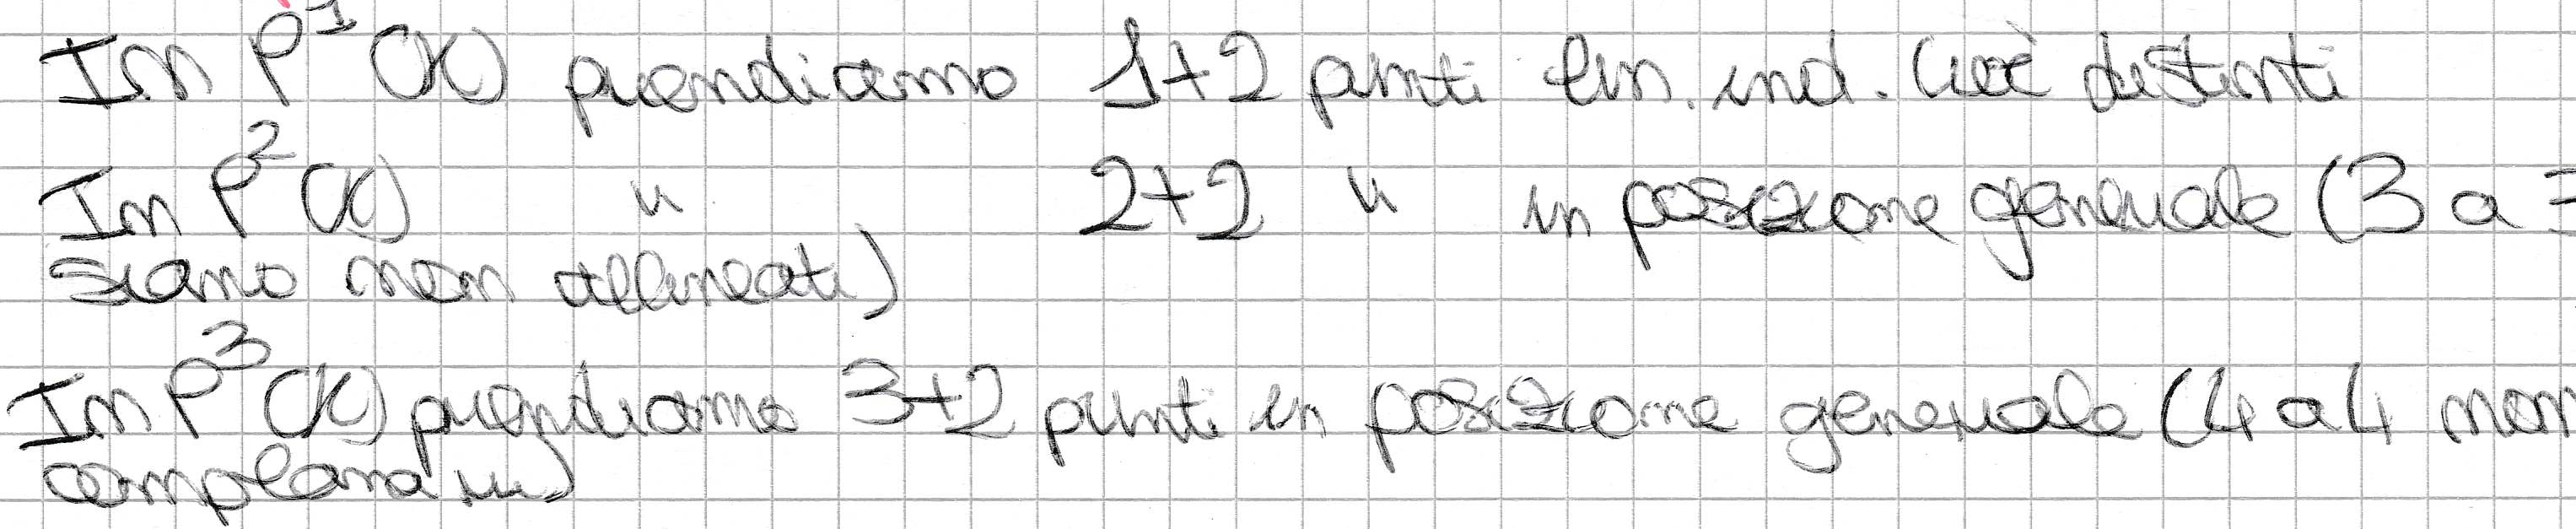 In P¹(K) prendiamo 1+2 punti lin. ind. cioè distinti
In P²(K) " 2+2 " in posizione generale (3 a 3
siano non allineati)
In P³(K) prendiamo 3+2 punti in posizione generale (4 a 4 non
complanari)